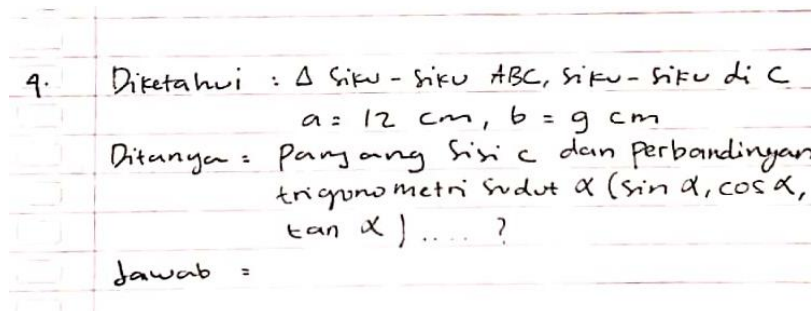 4. Diketahui : Δ Siku-Siku ABC, Siku-Siku di C
a = 12 cm, b = 9 cm
Ditanya = Panjang Sisi c dan perbandingan
trigonometri Sudut α (sin α, cos α,
tan α) .... ?
Jawab =